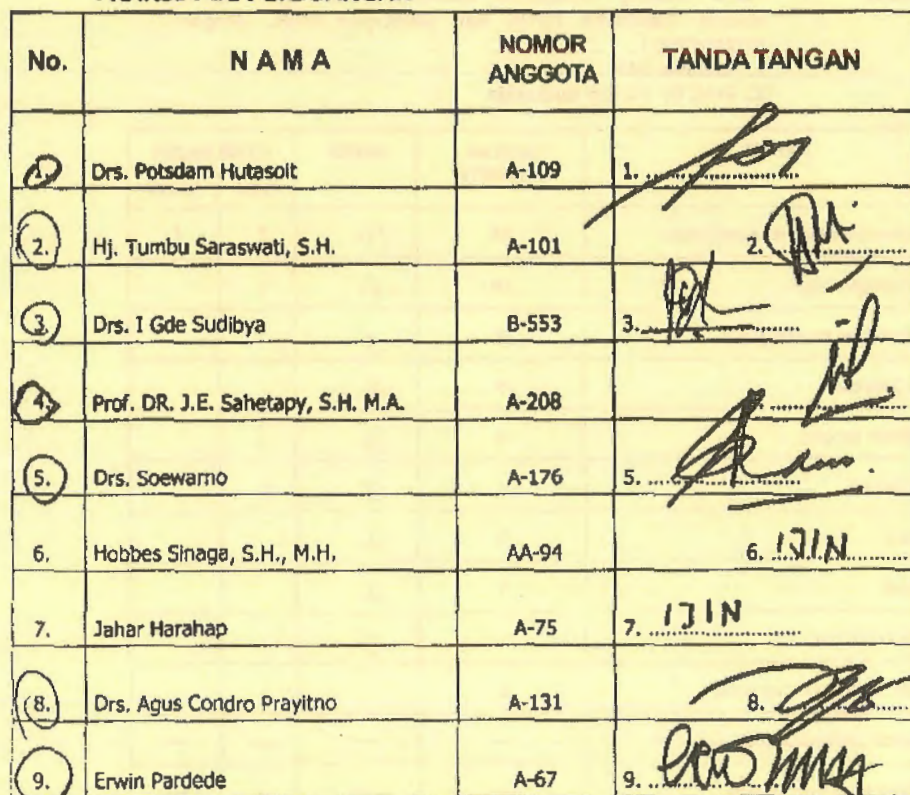 No. N A M A NOMOR ANGGOTA TANDA TANGAN
1. Drs. Potsdam Hutasoit A-109 1. ..........
2. Hj. Tumbu Saraswati, S.H. A-101 2. ..........
3. Drs. I Gde Sudibya B-553 3. ..........
4. Prof. DR. J.E. Sahetapy, S.H. M.A. A-208 ..........
5. Drs. Soewarno A-176 5. ..........
6. Hobbes Sinaga, S.H., M.H. AA-94 6. IJIN
7. Jahar Harahap A-75 7. IJIN
8. Drs. Agus Condro Prayitno A-131 8. ..........
9. Erwin Pardede A-67 9. ..........